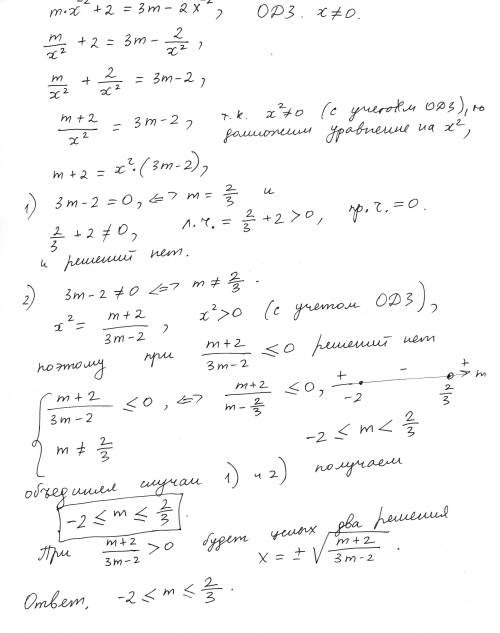 m·x⁻² + 2 = 3m - 2x⁻², ОДЗ. x ≠ 0.
m/x² + 2 = 3m - 2/x²,
m/x² + 2/x² = 3m - 2,
(m+2)/x² = 3m - 2, т.к. x² ≠ 0 (с учетом ОДЗ), то
домножим уравнение на x²,
m + 2 = x²·(3m - 2),
1) 3m - 2 = 0, <=> m = 2/3 и
2/3 + 2 ≠ 0, л.ч. = 2/3 + 2 > 0, пр.ч. = 0.
и решений нет.
2) 3m - 2 ≠ 0 <=> m ≠ 2/3.
x² = (m+2)/(3m-2), x² > 0 (с учетом ОДЗ),
поэтому при (m+2)/(3m-2) ≤ 0 решений нет
{ (m+2)/(3m-2) ≤ 0, <=> (m+2)/(m - 2/3) ≤ 0, + -2 - 2/3 + m
m ≠ 2/3 -2 ≤ m < 2/3
объединяя случаи 1) и 2) получаем
-2 ≤ m ≤ 2/3.
При (m+2)/(3m-2) > 0 будет целых два решения
x = ± √((m+2)/(3m-2)).
Ответ. -2 ≤ m ≤ 2/3.